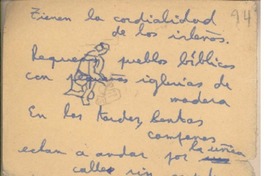 94
tienen la cordialidad
de los isleños.
Pequeños pueblos bíblicos
con pequeñas iglesias de
madera
En las tardes, lentas
campanas
echan a andar por la única
calle sin